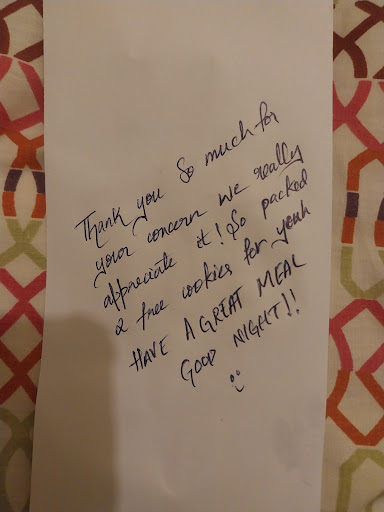 Thank you so much for
your concern we really
appreciate it! So packed
2 free cookies for yeah
HAVE A GREAT MEAL
GOOD NIGHT!!